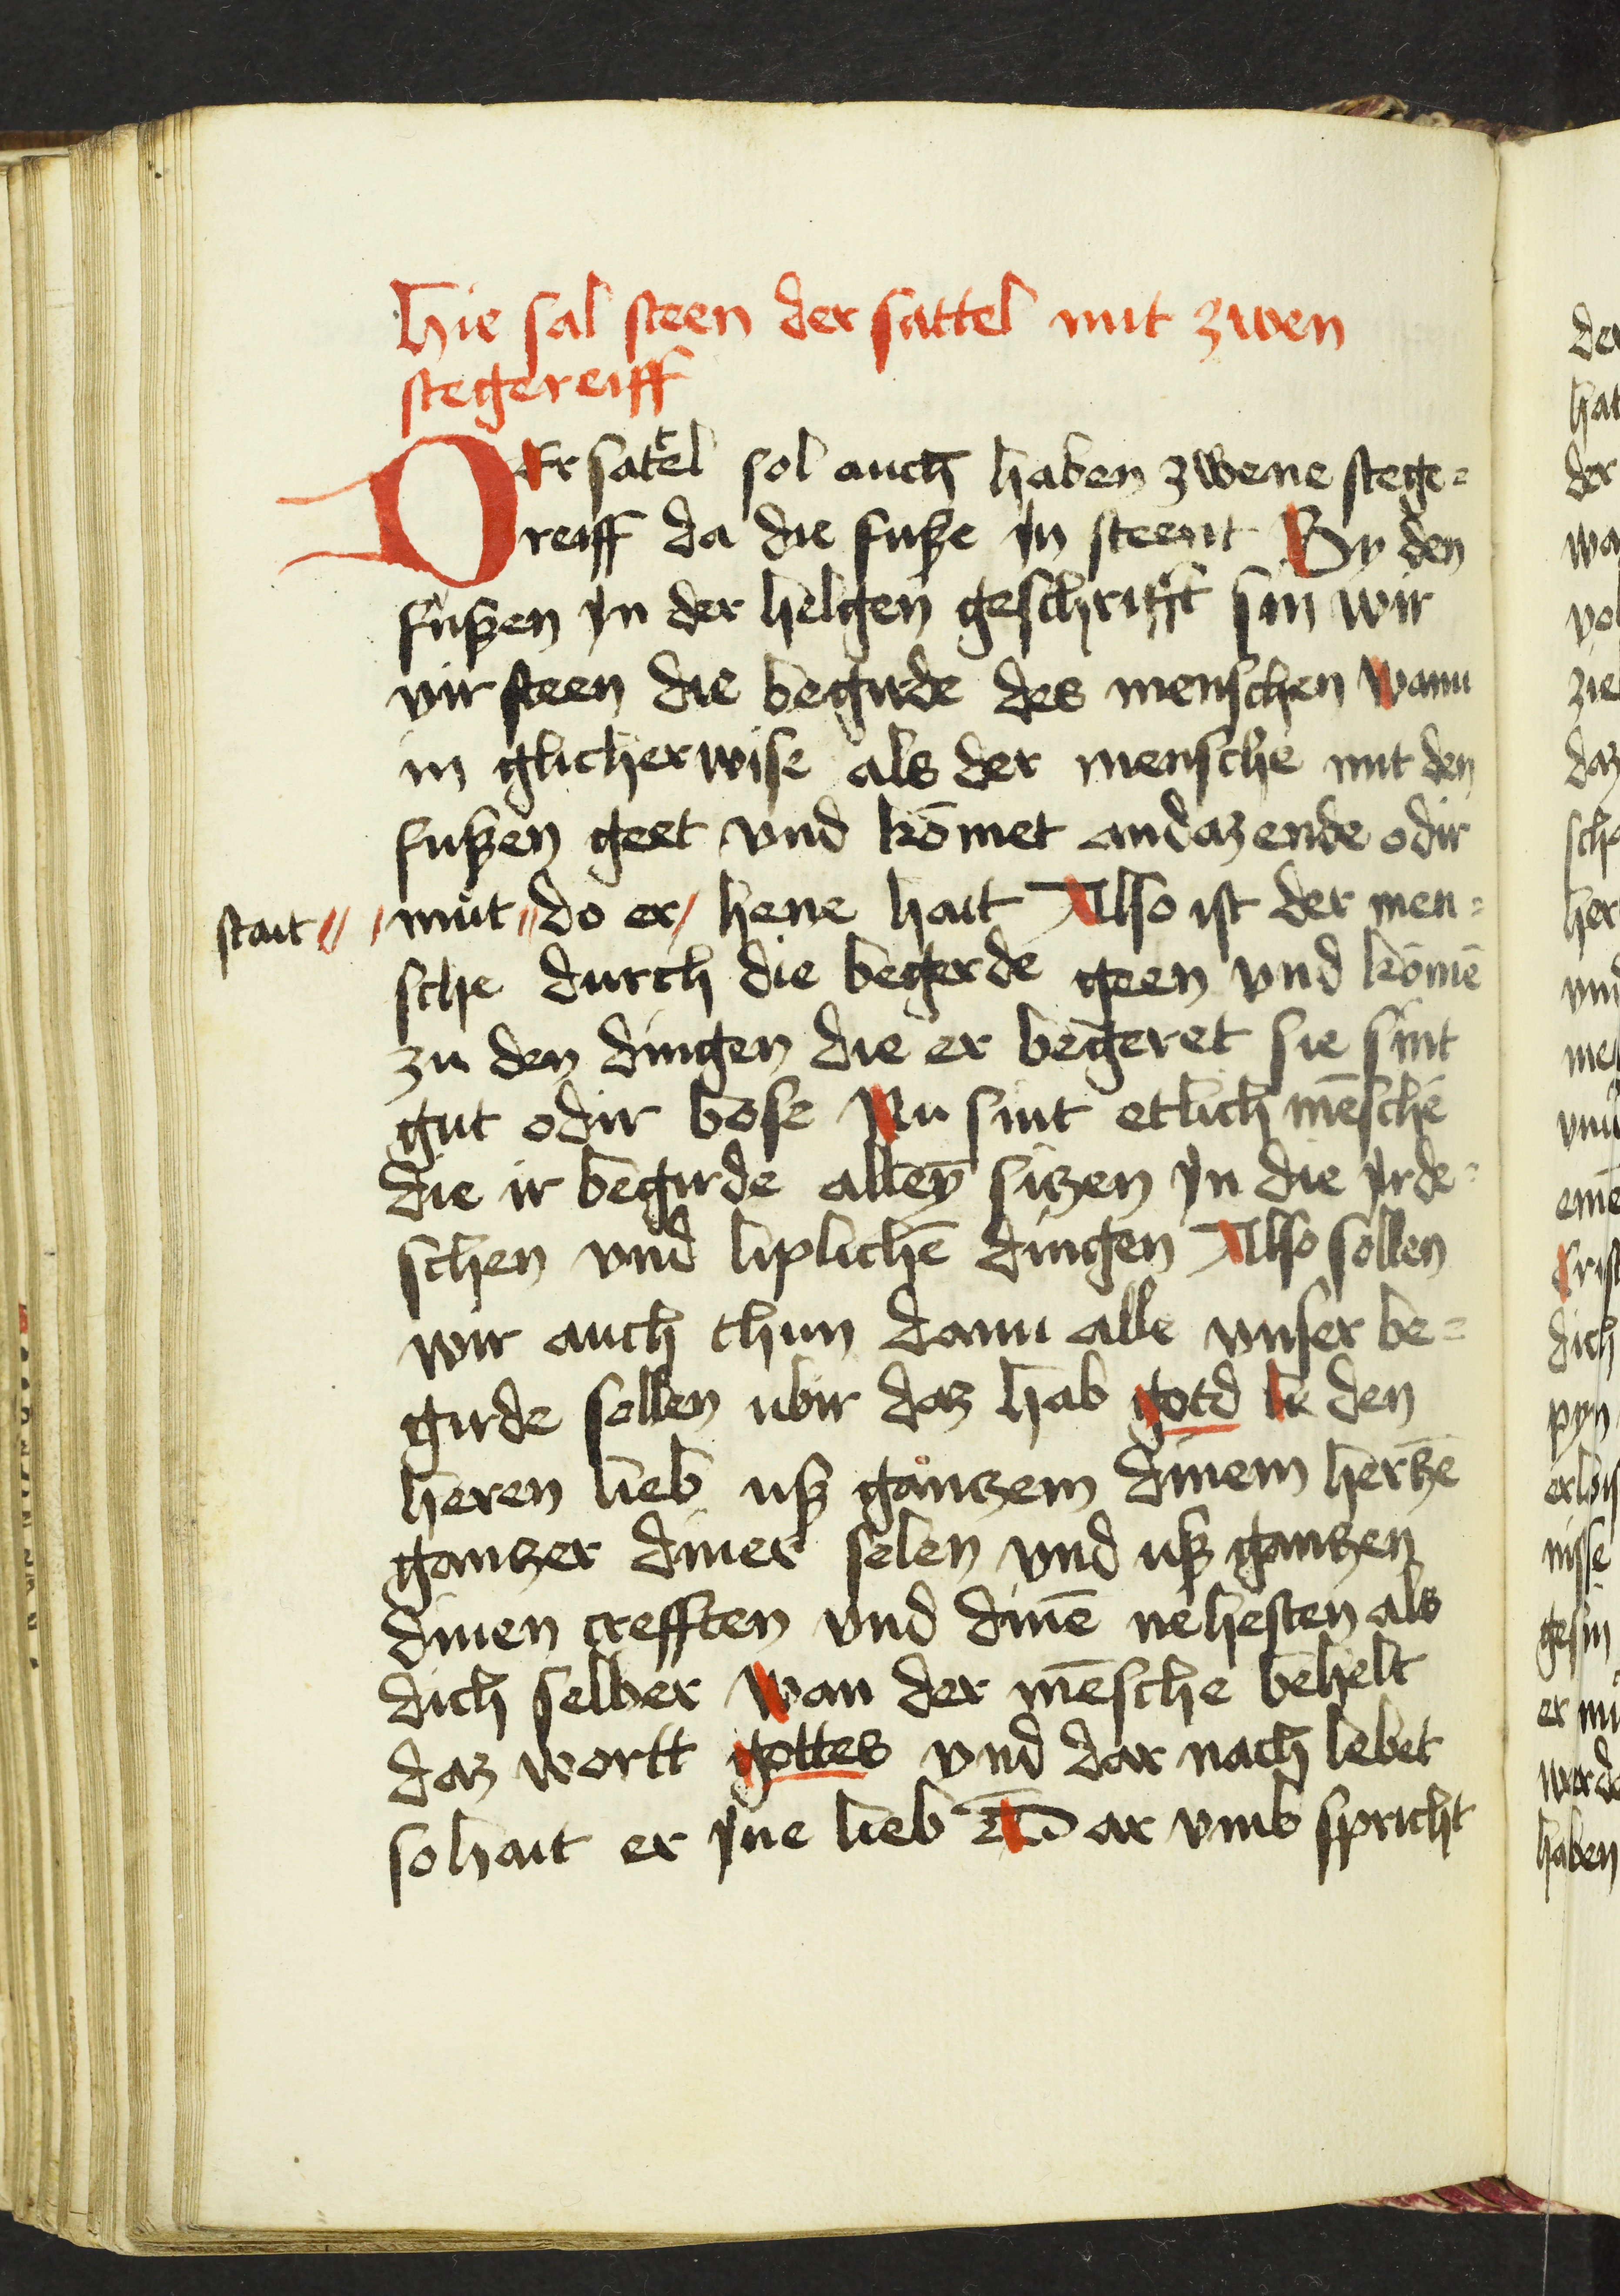 Hie sal steen der sattel mit zwen
stegereiff
DEr sattel sol auch haben zwene stege=
reiff da die fusze jn steent By den
fuszen jn der helgen geschrifft sin wir
vir steen die begirde des menschen wann
in glicherwise als der mensche mit den
fuszen geet vnd kōmet andaz ende odir
stait // / mut // do er / hene hait Also ist der men=
sche durch die begerde geen vnd kōmē
zu den dingen die er begeret sie sint
gut odir bose Nu sint etlich mēsche
die ir begirde alleȳ siczen jn die jrde=
schen vnd liplichē dingen Also sollen
wir auch thun dann alle vnser be=
girde sollen ubir daz hab gotd le den
heren lieb usz ganczem dinem herczē
ganczer diner selen vnd usz ganczen
dinen crefften vnd dinē nehesten als
dich selber wan der mēsche behelt
daz wortt gottes vnd dar nach lebet
so hait er jne lieb Dar vmb spricht
der
hat
der
daz
her
vnd
dich
pyn
nisse
haben